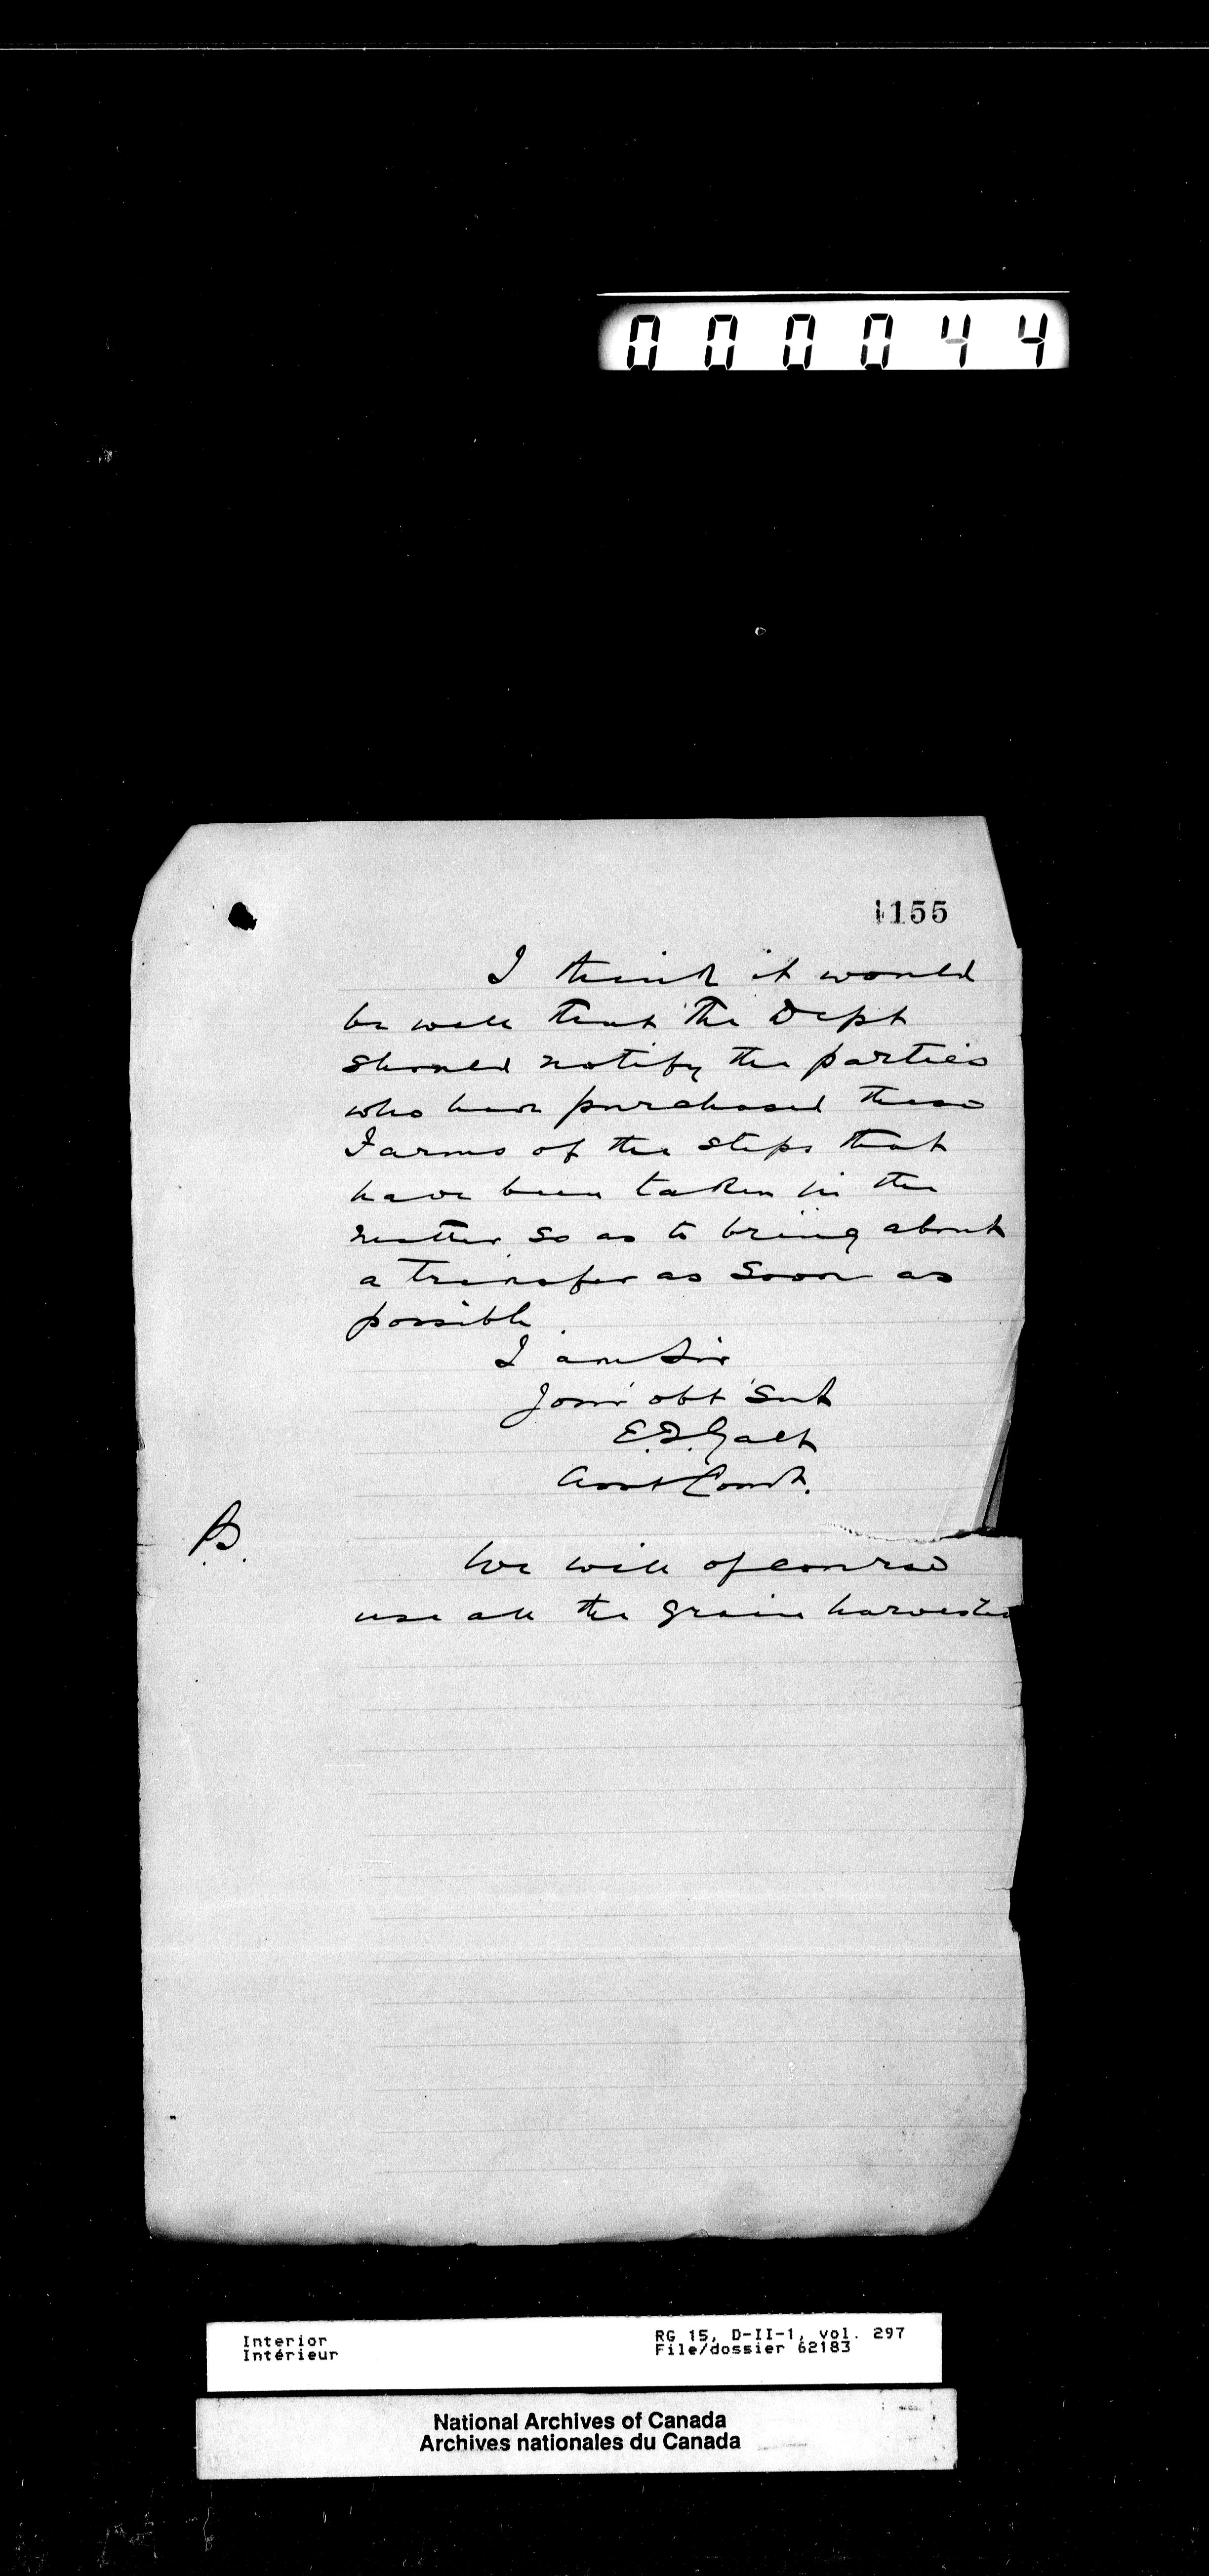 000044
1155
I think it would
be well that the Dept
should notify the parties
who have purchased these
Farms of the steps that
have been taken in the
matter so as to bring about
a transfer as soon as
possible
I am Sir
Your obt Svt
E.T. Galt
Asst Comr.
P.S.
We will of course
use all the grain harvested
Interior
Intérieur
RG 15, D-II-1, vol. 297
File/dossier 62183
National Archives of Canada
Archives nationales du Canada